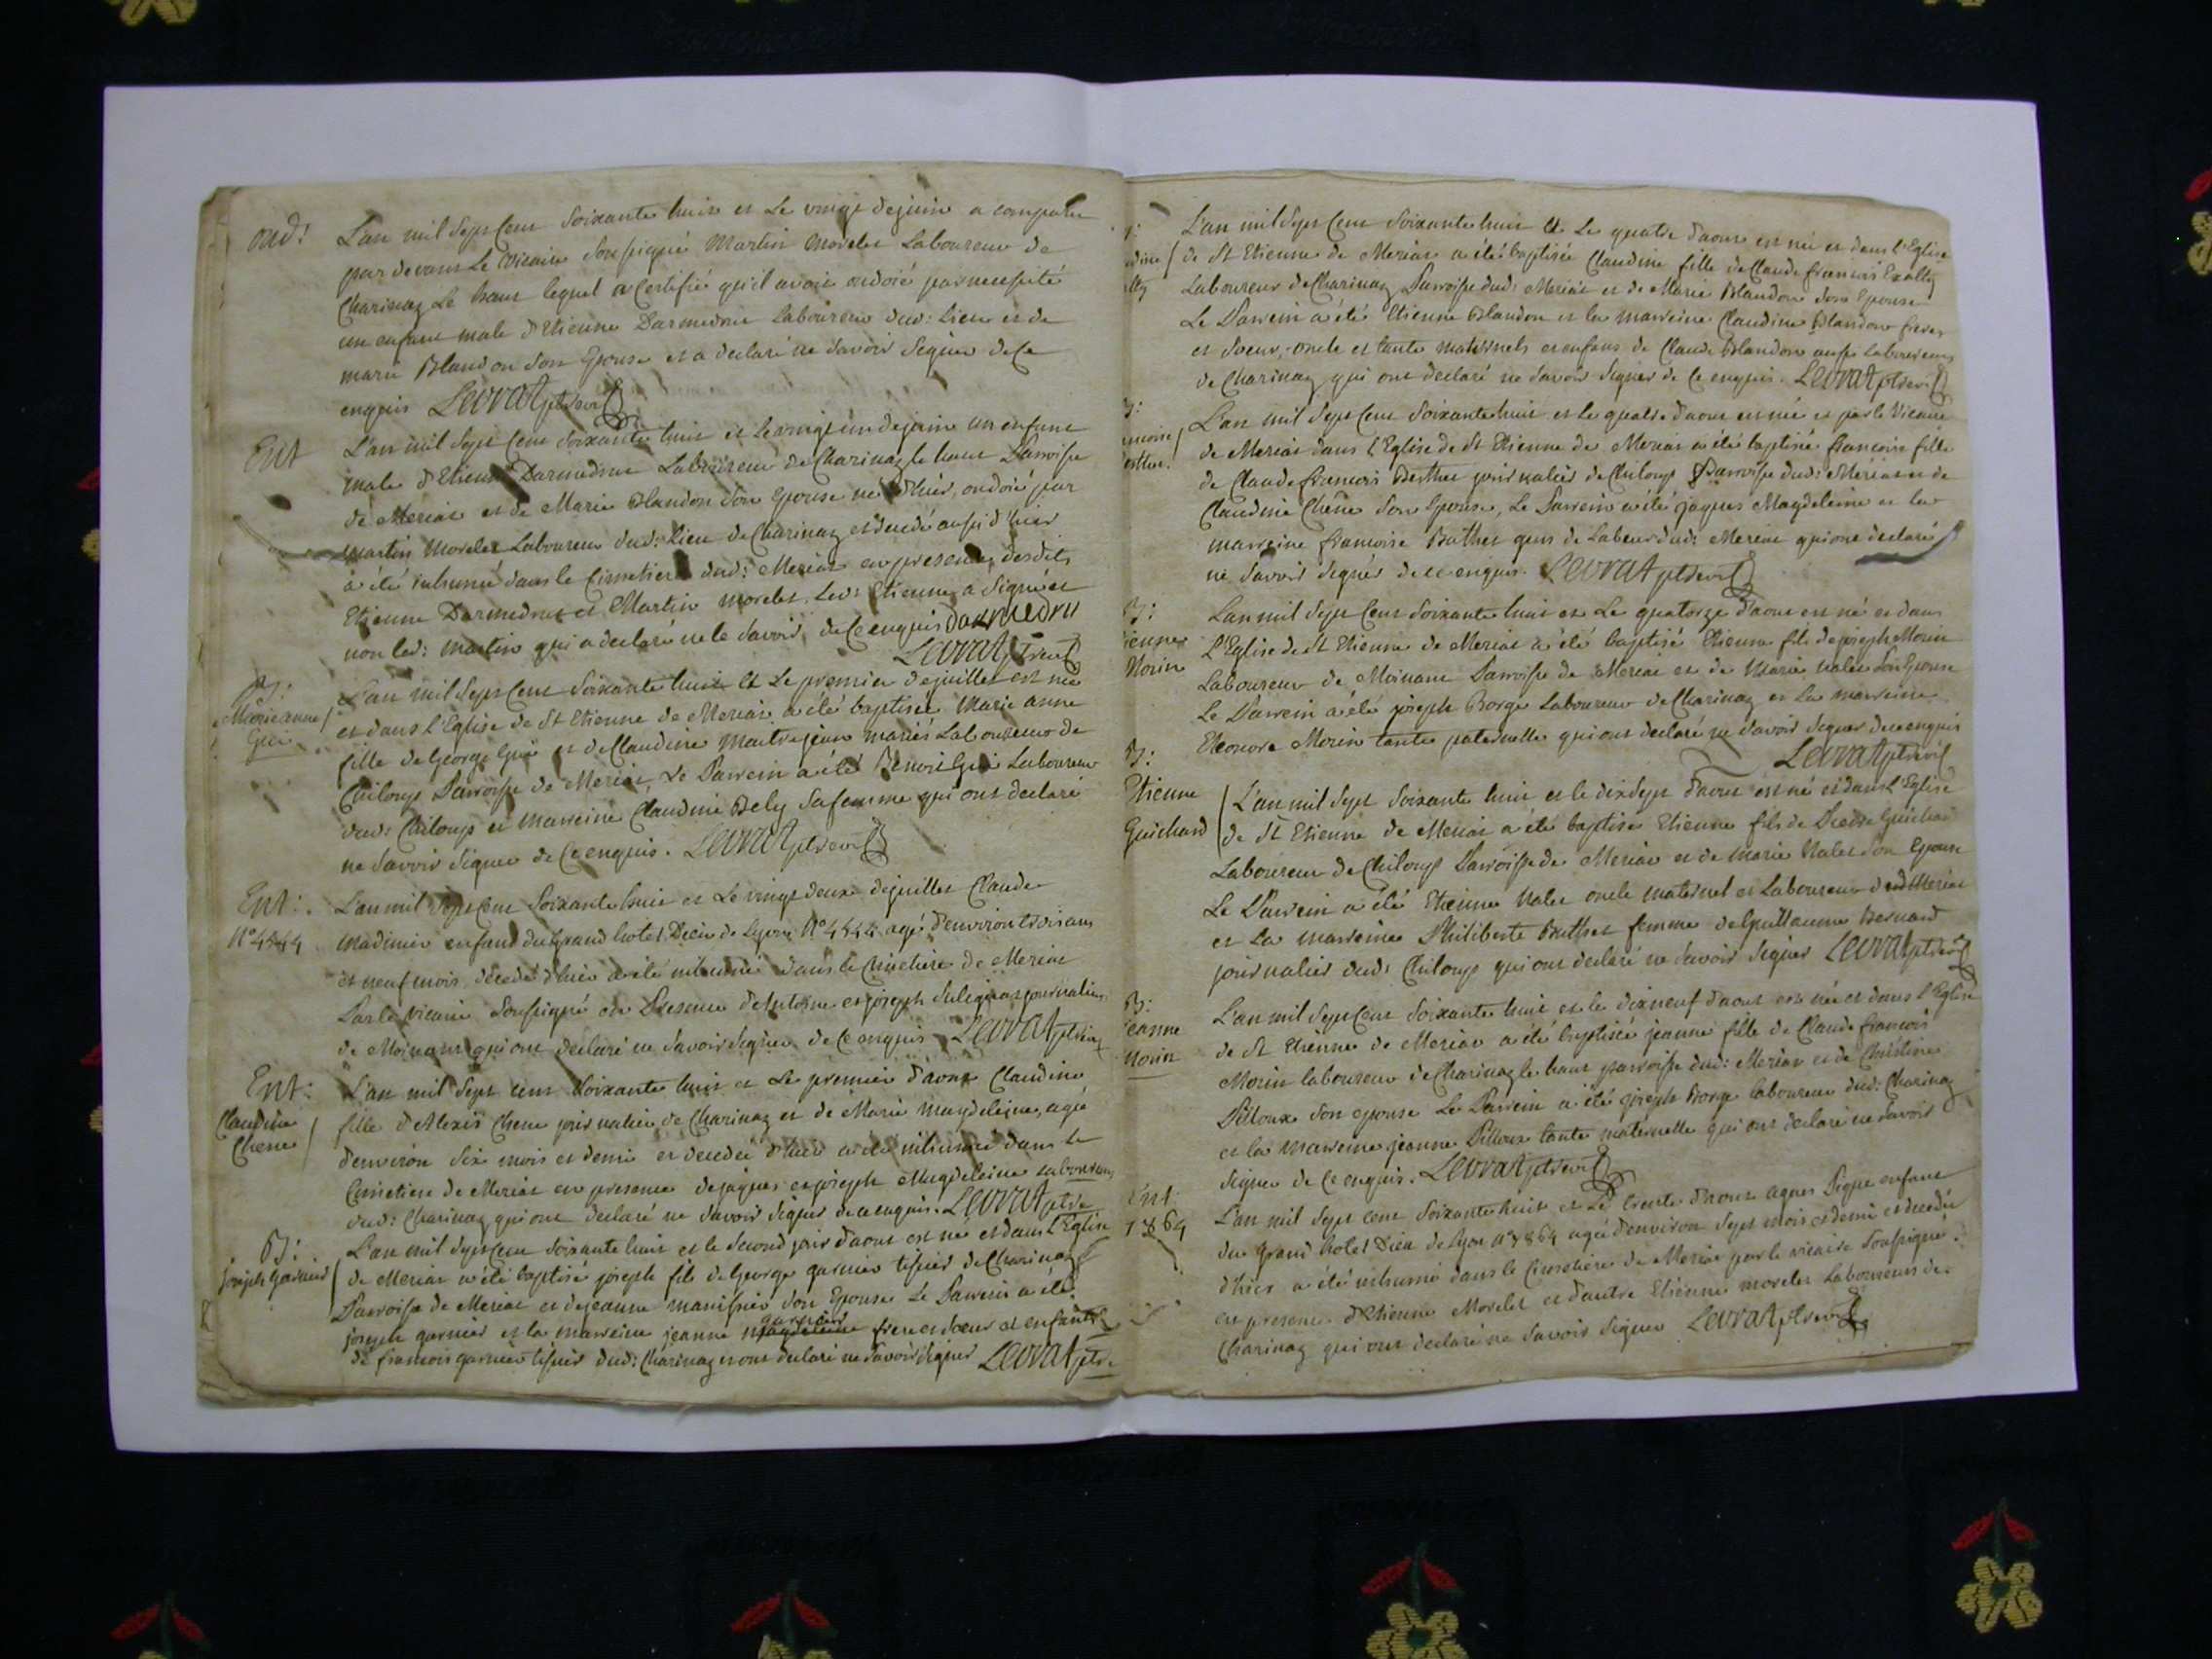 ond:
L'an mil sept cent soixante huit et Le vingt de juin a comparu
par devant Le vicaire soussigné Martin morelet Laboureur de
Charinaz Le haut lequel a certifié qu'il avoit ondoié par necessité
un enfant male d'Etienne Darmedru laboureur dud: Lieu et de
marie Blandon son Epouse et a declaré ne savoir signer de ce
enquis Levrat ptre vic
Ent
L'an mil sept cent soixante huit et le vingt un de juin un enfant
male d'Etienne Darmedru Laboureur de Charinaz le haut Parroisse
de Meriat et de Marie Blandon son Epouse né d'hier, ondoié par
Martin Morelet Laboureur dud: Lieu de Charinaz et decedé aussi d'hier
a été inhumé dans le Cimetiere dud: Meriat en presence desdits
Etienne Darmedru et Martin morelet. Led: Etienne a signé et
non led: martin qui a declaré ne le savoir, de ce enquis darmedru
Levrat ptre vic
B:
Marie anne
Gui
L'an mil sept cent soixante huit et Le premier de juillet est née
et dans l'Eglise de St Etienne de Meriat a été baptisée Marie anne
fille de George Gui et de Claudine Maitrejean mariés Laboureurs de
Chiloup Parroisse de Meriat, Le Parrein a été Benoit Gui Laboureur
dud: Chiloup et marreine Claudine Bely sa femme qui ont declaré
ne savoir signer de ce enquis. Levrat ptre vic
Ent:
N° 4544
L'an mil sept cent soixante huit et Le vingt deux de juillet Claude
Madinier enfant du Grand hotel Dieu de Lyon N° 4544 agé d'environ trois ans
et neuf mois decedé d'hier a été inhumé dans le Cimetiere de Meriat
Par le vicaire soussigné en Presence d'Antoine et joseph journaliers
de Moinant qui ont declaré ne savoir signer de ce enquis Levrat ptre vic
Ent:
Claudine
Chene
L'an mil sept cent soixante huit et Le premier d'aout Claudine
fille d'Alexis Chene journalier de Charinaz et de Marie Magdeleine, agée
d'environ six mois et demi et decedée d'hier a été inhumée dans le
Cimetiere de Meriat en presence de jaques et joseph Magdeleine laboureurs
dud: Charinaz qui ont declaré ne savoir signer de ce enquis. Levrat ptre
B:
joseph garnier
L'an mil sept cent soixante huit et le second jour d'aout est né et dans l'Eglise
de Meriat a été baptisé joseph fils de George garnier tissier de Charinaz
Parroisse de Meriat et de jeanne manissier son Epouse Le Parrein a été
garnier
joseph garnier et la marreine jeanne magdeleine frere et soeur et enfants
de francois garnier tissier dud: Charinaz et ont declaré ne savoir signer Levrat ptre
L'an mil sept cent soixante huit et Le quatre d'aout est née et dans l'Eglise
de St Etienne de Meriat a été baptisée Claudine fille de Claude francois Exalty
Laboureur de Charinaz Parroisse dud: Meriat et de Marie Blandon son Epouse
Le Parrein a été Etienne Blandon et la marreine Claudine Blandon freres
et soeur, oncle et tante maternels et enfans de Claude Blandon aussi laboureurs
de Charinaz qui ont declaré ne savoir signer de ce enquis. Levrat ptre vic
L'an mil sept cent soixante huit et le quatre d'aout est née et par le vicaire
de Meriat dans l'Eglise de St Etienne de Meriat a été baptisée francoise fille
de Claude francois Berthet journalier de Chiloup Parroisse dud: Meriat et de
Claudine Chêne son Epouse, Le Parrein a été jaques Magdeleine et la
marreine francoise Buthet gens de Labeur dud: Meriat qui ont declaré
ne savoir signer de ce enquis. Levrat ptre vic
B:
ienne
Morin
L'an mil sept cent soixante huit et Le quatorze d'aout est né et dans
L'Eglise de St Etienne de Meriat a été baptisé Etienne fils de joseph Morin
Laboureur de Moinant Parroisse de Meriat et de Marie Nalet son Epouse
Le Parrein a été joseph Borge Laboureur de Charinaz et La marreine
Eleonore Morin tante paternelle qui ont declaré ne savoir signer de ce enquis
Levrat ptre vic
B:
Etienne
Guichard
L'an mil sept soixante huit et le dix sept d'aout est né et dans l'Eglise
de St Etienne de Meriat a été baptisé Etienne fils de Pierre Guichard
Laboureur de Chiloup Parroisse de Meriat et de marie Nalet son Epouse
Le Parrein a été Etienne Nalet oncle maternel et Laboureur dud Meriat
et La marreine Philiberte Buthet femme de Guillaume Bernard
journalier dud: Chiloup qui ont declaré ne savoir signer Levrat ptre vic
B:
jeanne
Morin
L'an mil sept cent soixante huit et le dix neuf d'aout est née et dans l'Eglise
de St Etienne de Meriat a été baptisée jeanne fille de Claude francois
Morin laboureur de Charinaz le haut parroisse dud: Meriat et de Christine
Pilloux son epouse Le Parrein a été joseph Borge laboureur dud: Charinaz
et la marreine jeanne Pilloux tante maternelle qui ont declaré ne savoir
signer de ce enquis. Levrat ptre vic
Ent.
7864
L'an mil sept cent soixante huit et Le trente d'aout agnes Pigne enfant
du grand hotel Dieu de Lyon n° 7864 agée d'environ sept mois et demi et decedée
d'hier a été inhumé dans le Cimetiere de Meriat par le vicaire soussigné
en presence d'Etienne Morelet et d'autre Etienne morelet Laboureurs de
Charinaz qui ont declaré ne savoir signer Levrat ptre vic